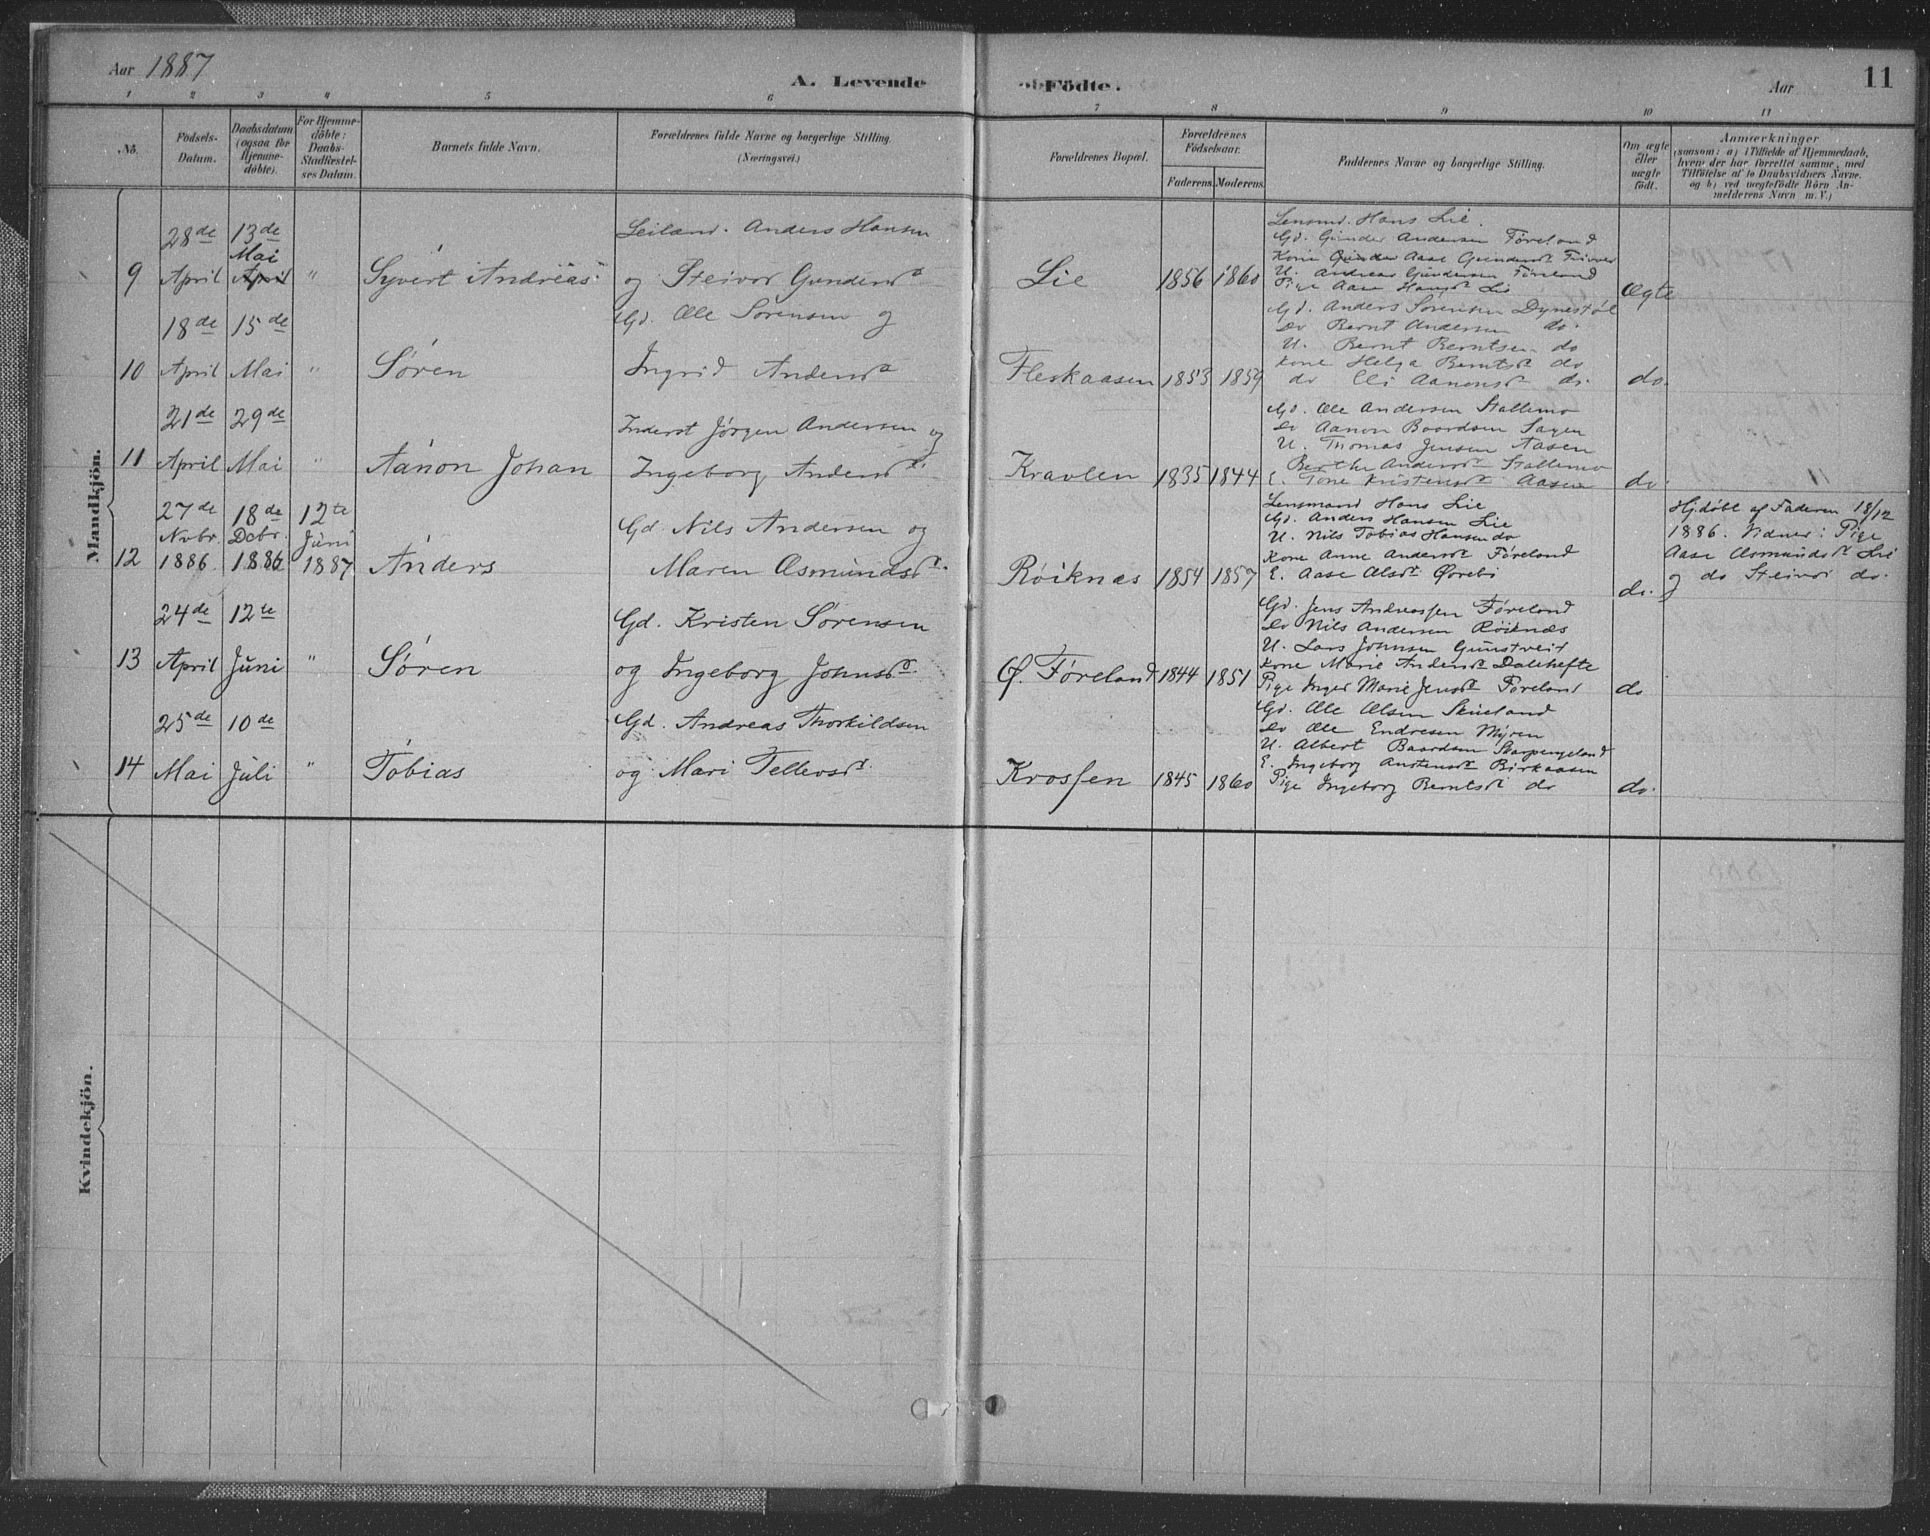 Aar 1887
A. Levende Födte.
Aar
11
1 2 3 4 5 6 7 8 9 10 11
No.
Födsels-
Datum.
Daabsdatum
(ogsaa for
Hjemme-
döbte).
For Hjemme-
döbte:
Daabs-
Stadfæstel-
ses Datum.
Barnets fulde Navn.
Forældrenes fulde Navne og borgerlige Stilling.
(Næringsvei.)
Forældrenes Bopæl.
Forældrenes
Födselsaar.
Faderens. Moderens.
Faddernes Navne og borgerlige Stilling.
Om ægte
eller
uægte
födt.
Anmærkninger
(saasom: a) i Tilfælde af Hjemmedaab,
hvem der har forrettet samme, med
Tilföielse af to Daabsvidners Navne.
og b) ved uægtefödte Börn An-
melderens Navn m. V.)
Mandkjön.
28de 13de
Mai
9 April April " Syvert Andreas
Leilænd. Anders Hansen
og Steivor Gundersdt
Lie 1856 1860
Lensmd. Hans Lie.
Gd. Gunder Andersen Føreland
Kone Gunder Aase Gundersdt
U. Andreas Gundersen Føreland
Pige Aase Hansdt Lie
Ægte
18de 15de
10 April Mai " Søren
Gd. Ole Sørensen og
Ingrid Andersdt
Fleskaasen 1853 1859
Gd. Anders Sørensen Dynestøl
do Bernt Andersen do.
U. Bernt Berntsen do
Kone Helga Berntsdt do
do Eli Aanonsdt do
do.
21de 29de
11 April Mai " Aanon Johan
Inderst Jørgen Andersen og
Ingeborg Andersdt
Kravlen 1835 1844
Gd. Ole Andersen Stallemo
do Aanon Baardsen Sagen
U. Thomas Jensen Aasen
Berthe Andersdt Stallemo
E. Tone Kristensdt Aasen
do.
27de 18de 12te
Nvbr. Dcbr. Juni
12 1886 1886 1887 Anders
Gd. Nils Andersen og
Maren Osmundsdt
Røiknæs 1854 1857
Lensmand Hans Lie
Gd. Anders Hansen Lie
U. Nils Tobias Hansen do
Kone Anne Andersdt Føreland
E. Aase Olsdt Øvrebø
do.
Hjdøbt af Faderen 18/12
1886. Vidner: Pige
Aase Osmundsdt Lie
og do Steivor do.
24de 12te
13 April Juni " Søren
Gd. Kristen Sørensen
og Ingeborg Johnsdt
Ø. Føreland 1844 1851
Gd. Jens Andreassen Føreland
do Nils Andersen Røiknæs
U. Lars Johnsen Gunstveit
Kone Marie Andersdt Dalehefte
Pige Inger Marie Jensdt Føreland
do
25de 10de
14 Mai Juli " Tobias
Gd. Andreas Thorkildsen
og Mari Tellevsdt
Krossen 1845 1860
Gd. Ole Olsen Skueland
do Ole Endresen Myren
U. Albert Baardsen Skarpengeland
E. Ingeborg Austensdt Birkaasen
Pige Ingeborg Berntsdt do
do.
Kvindekjön.